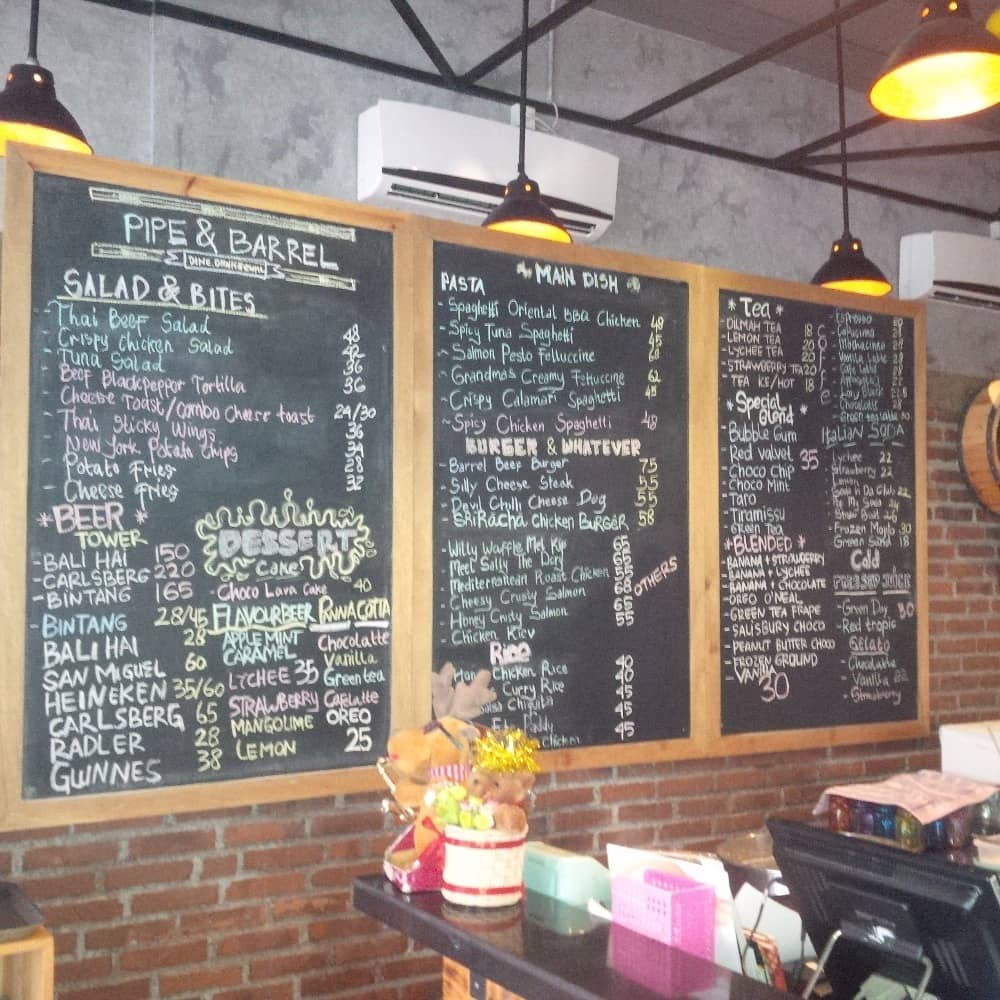 PIPE & BARREL
SALAD & BITES
- Thai Beef Salad 48
- Crispy Chicken Salad 42
- Tuna Salad 36
- Beef Blackpepper Tortilla 36
- Cheese Toast/Combo cheese toast 24/30
- Thai Sticky Wings 36
- New York Potato Chips 34
- Potato Fries 28
- Cheese Fries 32
*BEER*
TOWER
- BALI HAI 150
- CARLSBERG 220
- BINTANG 165
- BINTANG 28/45
BALI HAI 28
SAN MIGUEL 60
HEINEKEN 35/60
CARLSBERG 65
RADLER 28
GUINNES 38
DESSERT
Cake
- Choco Lava Cake 40
FLAVOURBEER
APPLEMINT
CARAMEL
LYCHEE 35
STRAWBERRY
MANGOLIME
LEMON
PANNA COTTA
Chocolatte
Vanilla
Greentea
Cafelatte
OREO
25
MAIN DISH
PASTA
- Spaghetti Oriental BBQ Chicken 48
- Spicy Tuna Spaghetti 45
- Salmon Pesto Felluccine 68
- Grandmas Creamy Fettuccine 62
- Crispy Calamari Spaghetti 45
- Spicy Chicken Spaghetti 48
BURGER & WHATEVER
- Barrel Beef Burger 75
- Silly Cheese Steak 55
- Devil Chilli Cheese Dog 55
- SRiRacha Chicken BURGER 58
- Willy Waffle 65
- Meet Sally The
- Mediterranean Roast Chicken
- Cheesy Crusty Salmon 68
- Honey Crusty Salmon 65
- Chicken Kiev 55
OTHERS
Rice
Chicken Rice 40
Curry Rice 48
Chiquita 45
45
Chicken 45
*Tea*
- DILMAH TEA 18
- LEMON TEA 20
- LYCHEE TEA 20
- STRAWBERRY TEA 20
- TEA ICE/HOT 18
*Special Blend*
- Bubble Gum
- Red valvet 35
- Choco Chip
- Choco Mint
- Taro
- Tiramissu
- Green Tea
*BLENDED*
- BANANA + STRAWBERRY
- BANANA + LYCHEE
- BANANA + CHOCOLATE
- OREO O'NEAL
- GREEN TEA FRAPE
- SALISBURY CHOCO
- PEANUT BUTTER CHOCO
- FROZEN GROUND
- VANILLA
30
Coffee
- Espresso
- Capucino
- Vanilla Latte
- Cafe Latte
- Long black
- Chocolate
ITALIAN SODA
- Lychee 22
- Strawberry 22
- Lemon
- Frozen Maple 30
- Green Sand 18
Cold
PRESSED JUICE
- Green Day 30
- Red tropic
Gelato
- Chocolatte
- Vanilla
- Strawberry